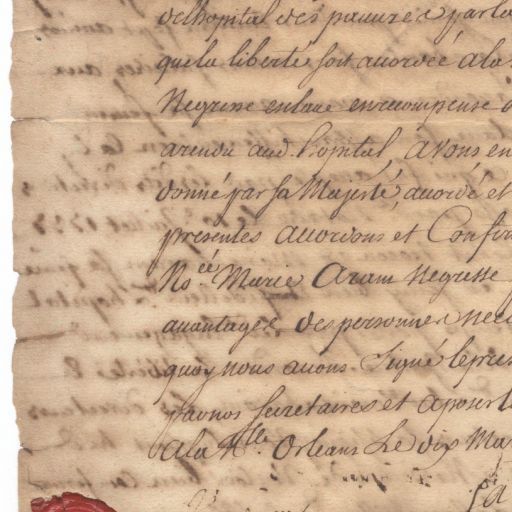 delhopital des pauvres par la
que la liberté soit accordée a la
Negresse esclave en recompense d
arendu aud. hopital, avons en
donné par sa Majesté, accordé et
presentes accordons et Confir
N.ée Marie Aram negresse
avantages des personnes nee
quoy nous avons Signé lepres
par nos secretaires et aposer l
A la N.lle Orleans Le dix Ma